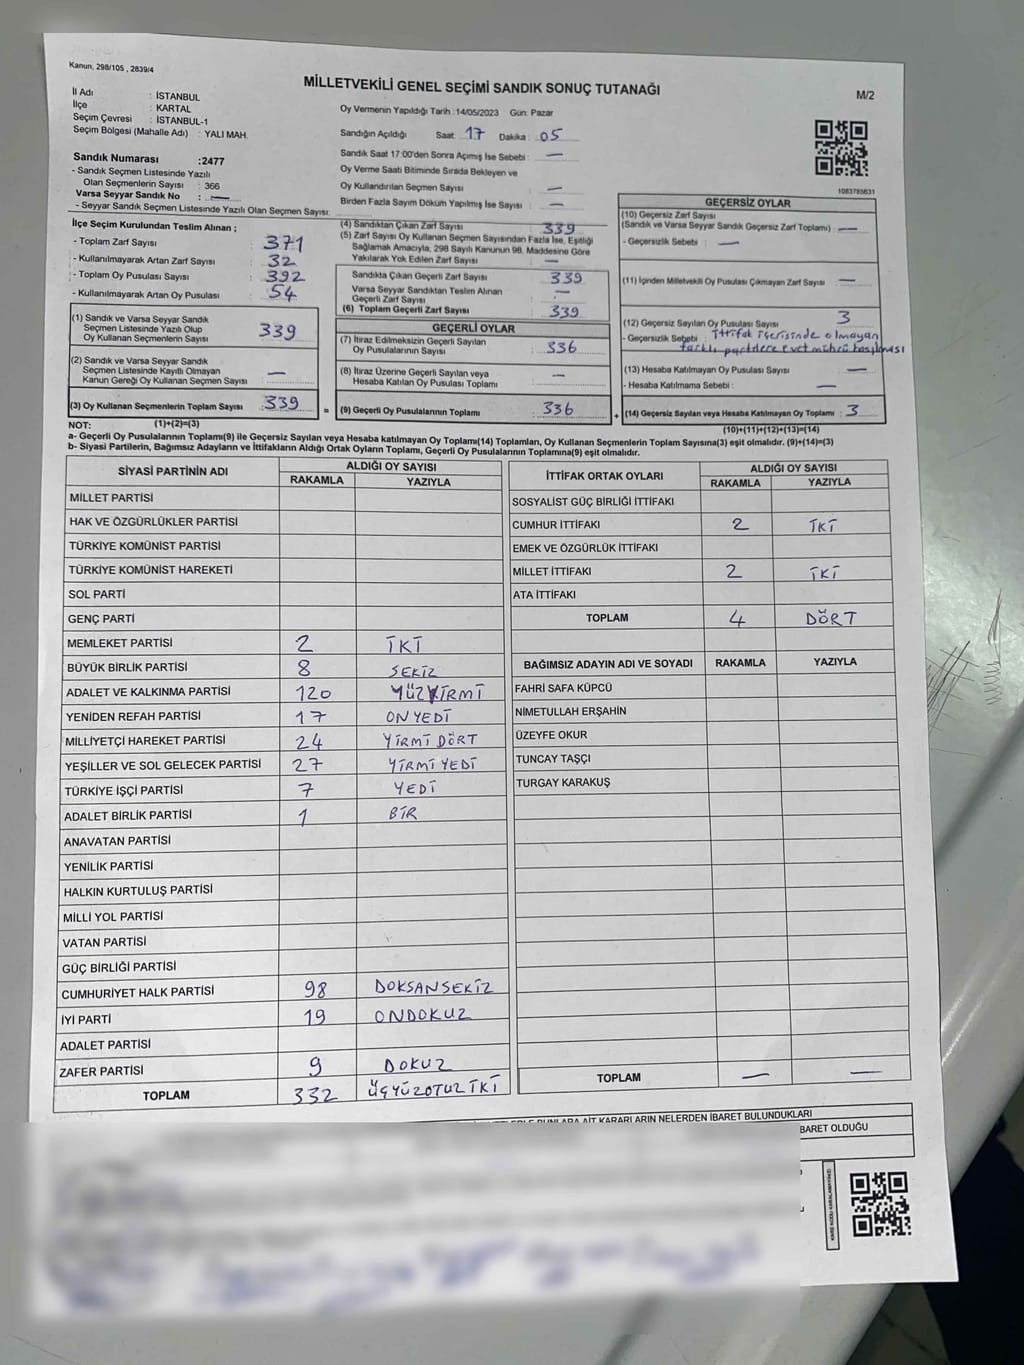 Kanun, 298/105 , 2839/4
MİLLETVEKİLİ GENEL SEÇİMİ SANDIK SONUÇ TUTANAĞI
M/2
İl Adı : İSTANBUL
İlçe : KARTAL
Seçim Çevresi : İSTANBUL-1
Seçim Bölgesi (Mahalle Adı) : YALI MAH.
Sandık Numarası :2477
- Sandık Seçmen Listesinde Yazılı
Olan Seçmenlerin Sayısı : 366
Varsa Seyyar Sandık No : —
- Seyyar Sandık Seçmen Listesinde Yazılı Olan Seçmen Sayısı:
Oy Vermenin Yapıldığı Tarih :14/05/2023 Gün: Pazar
Sandığın Açıldığı Saat: 17 Dakika : 05
Sandık Saat 17:00'den Sonra Açımış İse Sebebi : —
Oy Verme Saati Bitiminde Sırada Bekleyen ve
Oy Kullandırılan Seçmen Sayısı —
Birden Fazla Sayım Döküm Yapılmış İse Sayısı : —
1083785631
İlçe Seçim Kurulundan Teslim Alınan ;
- Toplam Zarf Sayısı : 371
- Kullanılmayarak Artan Zarf Sayısı : 32
- Toplam Oy Pusulası Sayısı : 392
- Kullanılmayarak Artan Oy Pusulası : 54
(1) Sandık ve Varsa Seyyar Sandık
Seçmen Listesinde Yazılı Olup
Oy Kullanan Seçmenlerin Sayısı 339
(2) Sandık ve Varsa Seyyar Sandık
Seçmen Listesinde Kayıtlı Olmayan
Kanun Gereği Oy Kullanan Seçmen Sayısı —
(3) Oy Kullanan Seçmenlerin Toplam Sayısı 339 =
(1)+(2)=(3)
(4) Sandıktan Çıkan Zarf Sayısı 339
(5) Zarf Sayısı Oy Kullanan Seçmen Sayısından Fazla İse, Eşitliği
Sağlamak Amacıyla, 298 Sayılı Kanunun 98. Maddesine Göre
Yakılarak Yok Edilen Zarf Sayısı —
Sandıkta Çıkan Geçerli Zarf Sayısı 339
Varsa Seyyar Sandıktan Teslim Alınan
Geçerli Zarf Sayısı —
(6) Toplam Geçerli Zarf Sayısı 339
GEÇERLİ OYLAR
(7) İtiraz Edilmeksizin Geçerli Sayılan
Oy Pusulalarının Sayısı 336
(8) İtiraz Üzerine Geçerli Sayılan veya
Hesaba Katılan Oy Pusulası Toplamı —
(9) Geçerli Oy Pusulalarının Toplamı 336 +
GEÇERSİZ OYLAR
(10) Geçersiz Zarf Sayısı
(Sandık ve Varsa Seyyar Sandık Geçersiz Zarf Toplamı) : —
- Geçersizlik Sebebi : —
(11) İçinden Milletvekili Oy Pusulası Çıkmayan Zarf Sayısı : —
(12) Geçersiz Sayılan Oy Pusulası Sayısı 3
- Geçersizlik Sebebi : ittifak içerisinde olmayan
farklı partilere evet mührü basılması
(13) Hesaba Katılmayan Oy Pusulası Sayısı —
- Hesaba Katılmama Sebebi : —
(14) Geçersiz Sayılan veya Hesaba Katılmayan Oy Toplamı : 3
(10)+(11)+(12)+(13)=(14)
NOT:
a- Geçerli Oy Pusulalarının Toplamı(9) ile Geçersiz Sayılan veya Hesaba katılmayan Oy Toplamı(14) Toplamları, Oy Kullanan Seçmenlerin Toplam Sayısına(3) eşit olmalıdır. (9)+(14)=(3)
b- Siyasi Partilerin, Bağımsız Adayların ve İttifakların Aldığı Ortak Oyların Toplamı, Geçerli Oy Pusulalarının Toplamına(9) eşit olmalıdır.
SİYASİ PARTİNİN ADI ALDIĞI OY SAYISI
RAKAMLA YAZIYLA
MİLLET PARTİSİ
HAK VE ÖZGÜRLÜKLER PARTİSİ
TÜRKİYE KOMÜNİST PARTİSİ
TÜRKİYE KOMÜNİST HAREKETİ
SOL PARTİ
GENÇ PARTİ
MEMLEKET PARTİSİ 2 İKİ
BÜYÜK BİRLİK PARTİSİ 8 SEKİZ
ADALET VE KALKINMA PARTİSİ 120 YÜZYİRMİ
YENİDEN REFAH PARTİSİ 17 ONYEDİ
MİLLİYETÇİ HAREKET PARTİSİ 24 YİRMİ DÖRT
YEŞİLLER VE SOL GELECEK PARTİSİ 27 YİRMİ YEDİ
TÜRKİYE İŞÇİ PARTİSİ 7 YEDİ
ADALET BİRLİK PARTİSİ 1 BİR
ANAVATAN PARTİSİ
YENİLİK PARTİSİ
HALKIN KURTULUŞ PARTİSİ
MİLLİ YOL PARTİSİ
VATAN PARTİSİ
GÜÇ BİRLİĞİ PARTİSİ
CUMHURİYET HALK PARTİSİ 98 DOKSANSEKİZ
İYİ PARTİ 19 ONDOKUZ
ADALET PARTİSİ
ZAFER PARTİSİ 9 DOKUZ
TOPLAM 332 ÜÇYÜZOTUZ İKİ
İTTİFAK ORTAK OYLARI ALDIĞI OY SAYISI
RAKAMLA YAZIYLA
SOSYALİST GÜÇ BİRLİĞİ İTTİFAKI
CUMHUR İTTİFAKI 2 İKİ
EMEK VE ÖZGÜRLÜK İTTİFAKI
MİLLET İTTİFAKI 2 İKİ
ATA İTTİFAKI
TOPLAM 4 DÖRT
BAĞIMSIZ ADAYIN ADI VE SOYADI RAKAMLA YAZIYLA
FAHRİ SAFA KÜPCÜ
NİMETULLAH ERŞAHİN
ÜZEYFE OKUR
TUNCAY TAŞÇI
TURGAY KARAKUŞ
TOPLAM — —
BUNLARA AİT KARARLARIN NELERDEN İBARET BULUNDUKLARI
BARET OLDUĞU